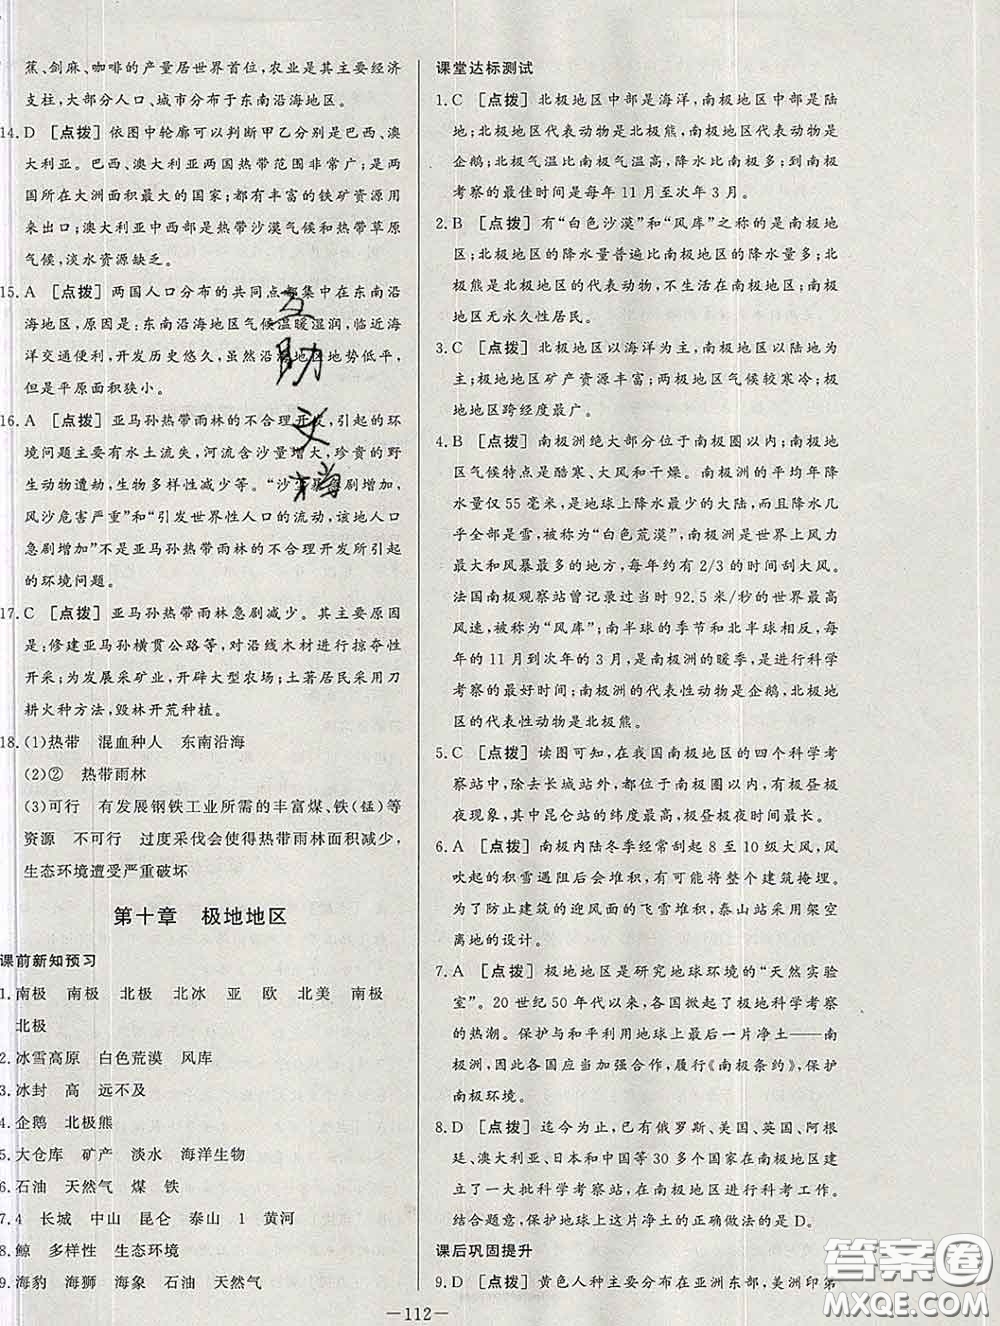 蕉、剑麻、咖啡的产量居世界首位,农业是其主要经济
支柱,大部分人口、城市分布于东南沿海地区。
14. D [点拨] 依图中轮廓可以判断甲乙分别是巴西、澳
大利亚。巴西、澳大利亚两国热带范围非常广;是两
国所在大洲面积最大的国家;都有丰富的铁矿资源用
来出口;澳大利亚中西部是热带沙漠气候和热带草原
气候,淡水资源缺乏。
15. A [点拨] 两国人口分布的共同点都集中在东南沿
海地区,原因是:东南沿海地区气候温暖湿润,临近海
洋交通便利,开发历史悠久,虽然沿海地区地势低平,
但是平原面积狭小。
16. A [点拨] 亚马孙热带雨林的不合理开发,引起的环
境问题主要有水土流失,河流含沙量增大,珍贵的野
生动物遭劫,生物多样性减少等。“沙尘暴急剧增加,
风沙危害严重”和“引发世界性人口的流动,该地人口
急剧增加”不是亚马孙热带雨林的不合理开发所引起
的环境问题。
17. C [点拨] 亚马孙热带雨林急剧减少。其主要原因
是:修建亚马孙横贯公路等,对沿线木材进行掠夺性
开采;为发展采矿业,开辟大型农场;土著居民采用刀
耕火种方法,毁林开荒种植。
18. (1)热带 混血种人 东南沿海
(2)② 热带雨林
(3)可行 有发展钢铁工业所需的丰富煤、铁(锰)等
资源 不可行 过度采伐会使得热带雨林面积减少,
生态环境遭受严重破坏
第十章 极地地区
课前新知预习
1. 南极 南极 北极 北冰 亚 欧 北美 南极
北极
2. 冰雪高原 白色荒漠 风库
3. 冰封 高 远不及
4. 企鹅 北极熊
5. 大仓库 矿产 淡水 海洋生物
6. 石油 天然气 煤 铁
7. 4 长城 中山 昆仑 泰山 1 黄河
8. 鲸 多样性 生态环境
9. 海豹 海狮 海象 石油 天然气
课堂达标测试
1. C [点拨] 北极地区中部是海洋,南极地区中部是陆
地;北极地区代表动物是北极熊,南极地区代表动物是
企鹅;北极气温比南极气温高,降水比南极多;到南极
考察的最佳时间是每年 11 月至次年 3 月。
2. B [点拨] 有“白色沙漠”和“风库”之称的是南极地
区;北极地区的降水量普遍比南极地区的降水量多;北
极熊是北极地区的代表动物,不生活在南极地区;南极
地区无永久性居民。
3. C [点拨] 北极地区以海洋为主,南极地区以陆地为
主;极地地区矿产资源丰富;两极地区气候较寒冷;极
地地区跨经度最广。
4. B [点拨] 南极洲绝大部分位于南极圈以内;南极地
区气候特点是酷寒、大风和干燥。南极洲的平均年降
水量仅 55 毫米,是地球上降水最少的大陆,而且降水几
乎全部是雪,被称为“白色荒漠”;南极洲是世界上风力
最大和风暴最多的地方,每年约有 2/3 的时间刮大风。
法国南极观察站曾记录过当时 92.5 米/秒的世界最高
风速,被称为“风库”;南半球的季节和北半球相反,每
年的 11 月到次年的 3 月,是南极洲的暖季,是进行科学
考察的最好时间;南极洲的代表性动物是企鹅,北极地
区的代表性动物是北极熊。
5. C [点拨] 读图可知,在我国南极地区的四个科学考
察站中,除去长城站外,都位于南极圈以内,有极昼极
夜现象,其中昆仑站的纬度最高,极昼极夜时间最长。
6. A [点拨] 南极内陆冬季经常刮起 8 至 10 级大风,风
吹起的积雪遇阻后会堆积,有可能将整个建筑掩埋。
为了防止建筑的迎风面的飞雪堆积,泰山站采用架空
离地的设计。
7. A [点拨] 极地地区是研究地球环境的“天然实验
室”。20 世纪 50 年代以来,各国掀起了极地科学考察
的热潮。保护与和平利用地球上最后一片净土——南
极洲,因此,各国应当加强合作,履行《南极条约》,保护
南极环境。
8. D [点拨] 迄今为止,已有俄罗斯、美国、英国、阿根
廷、澳大利亚、日本和中国等 30 多个国家在南极地区建
立了一大批科学考察站,在南极地区进行科考工作。
结合题意,保护地球上这片净土的正确做法的是 D。
课后巩固提升
9. D [点拨] 黄色人种主要分布在亚洲东部,美洲印第
—112—
互
助
文
档
答案圈
MXQE.COM